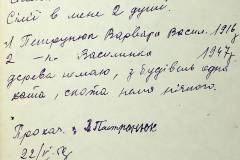 Сімї в мене 2 душі.
1 Петрунюк Варвара Васил. 1916
2 -"- Василина 1947 р
дерева немаю, з будівель одна
хата, скота нема нічого.
Прохач. з Петронюк
22/VI